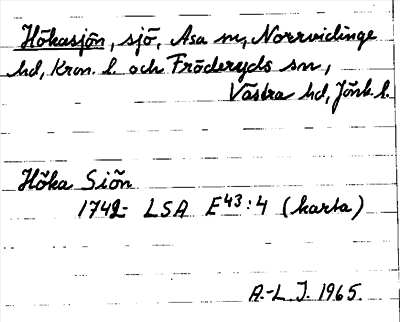 Hökasjön, sjö, Asa sn, Norrvidinge
hd, Kron. l. och Fröderyds sn,
Västra hd, Jönk. l.
Höka Siön
1742- LSA E43:4 (karta)
A.-L. J. 1965.